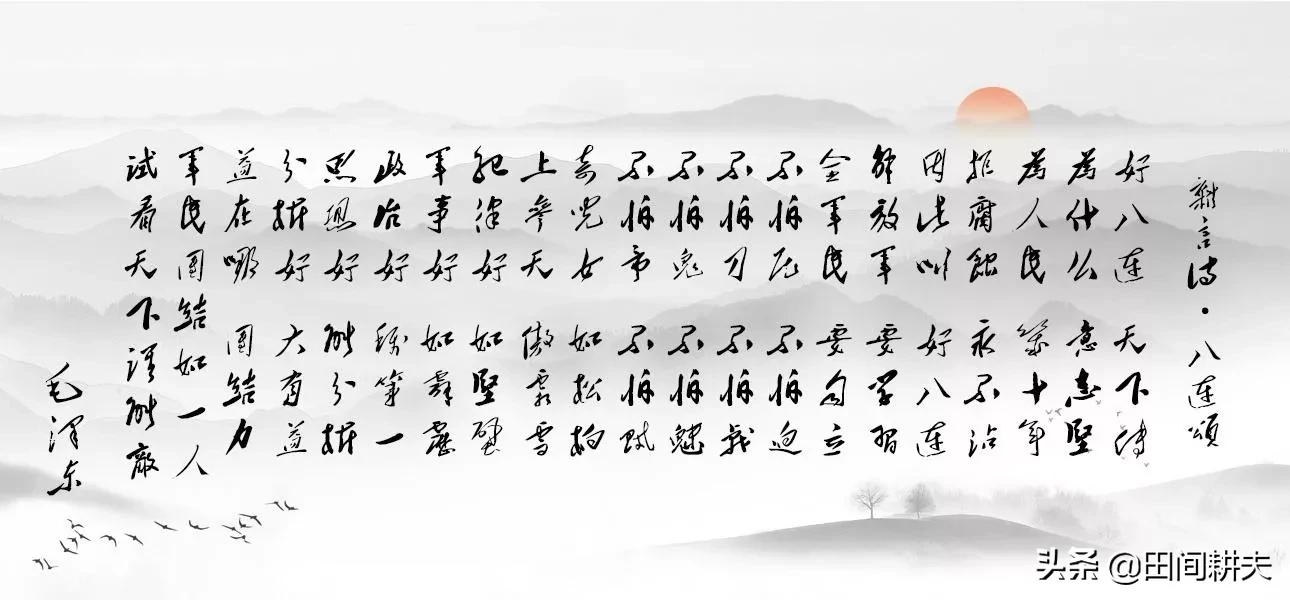 雜言诗·八连颂
好八连 天下传
為什么 意志坚
為人民 幾十年
拒腐蚀 永不沾
因此叫 好八连
解放军 要学习
全军民 要自立
不怕压 不怕迫
不怕刀 不怕戟
不怕鬼 不怕魅
不怕帝 不怕贼
奇儿女 如松柏
上參天 傲霜雪
纪律好 如坚壁
军事好 如霹雳
政治好 称第一
思想好 能分析
分析好 大有益
益在哪 团结力
军民团结如一人
试看天下谁能敵
毛泽东
头条 @田间耕夫